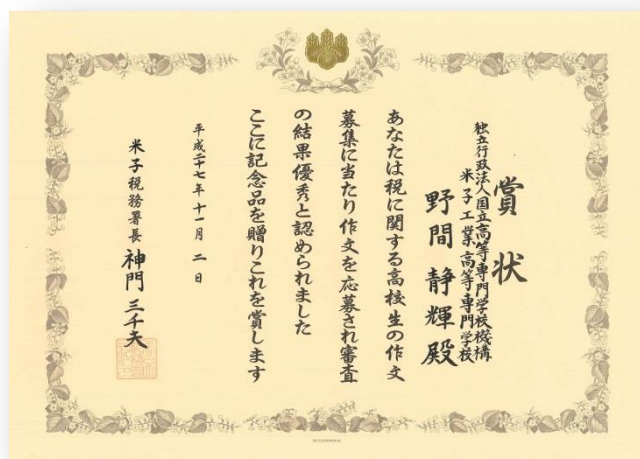 賞状
独立行政法人国立高等専門学校機構
米子工業高等専門学校
野間静輝殿
あなたは税に関する高校生の作文
募集に当たり作文を応募され審査
の結果優秀と認められました
ここに記念品を贈りこれを賞します
平成二十七年十一月二日
米子税務署長 神門三千夫